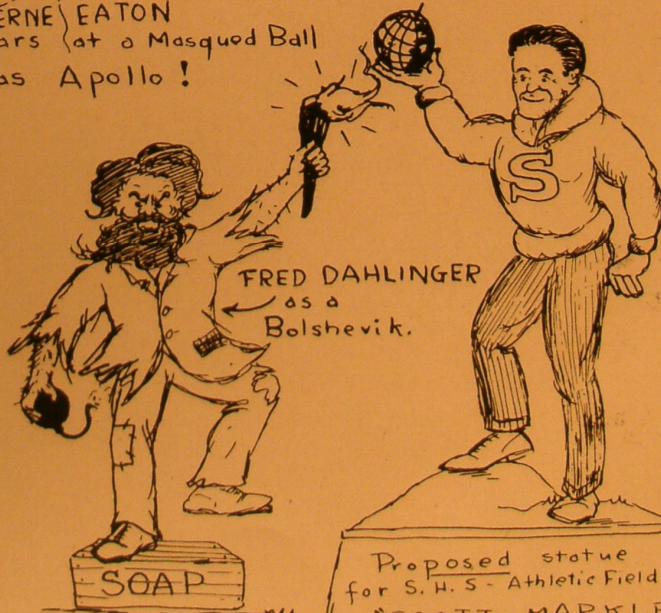 ERNE EATON
ars at a Masqued Ball
as Apollo!
S
FRED DAHLINGER
as a
Bolshevik.
SOAP
Proposed statue
for S.H.S - Athletic Field